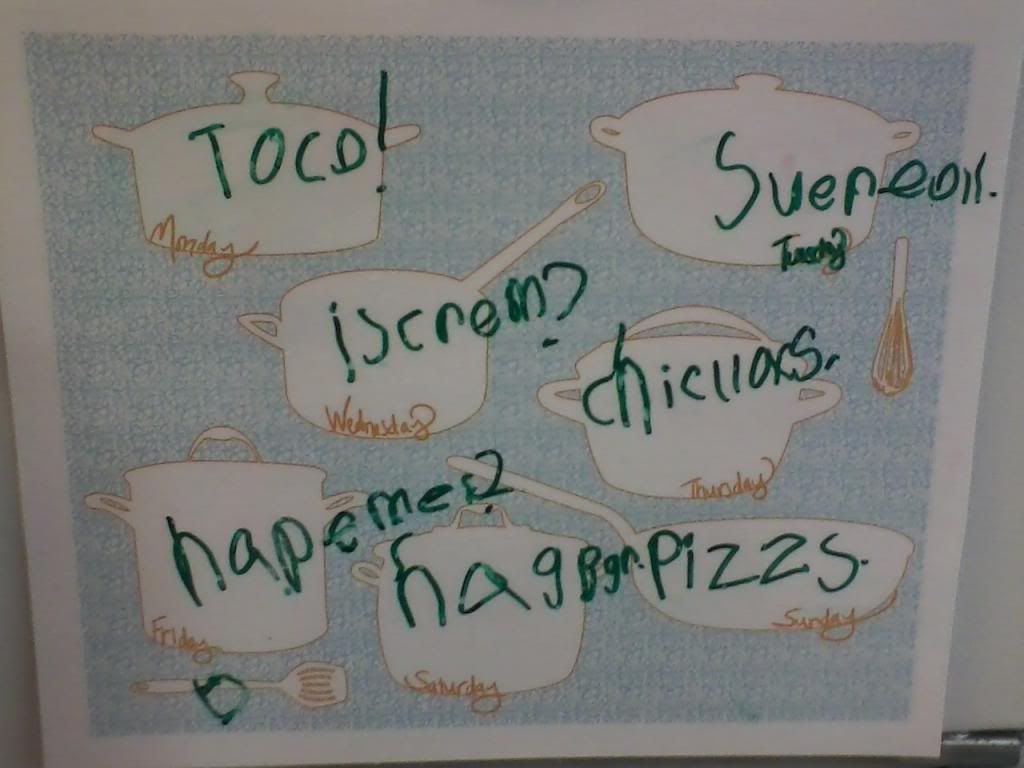 TOCO!
Monday
Tuesday
iscrem?
Wednesday
chicllacs.
Thursday
hapemes?
Friday
hag
Saturday
PIZZS.
Sunday